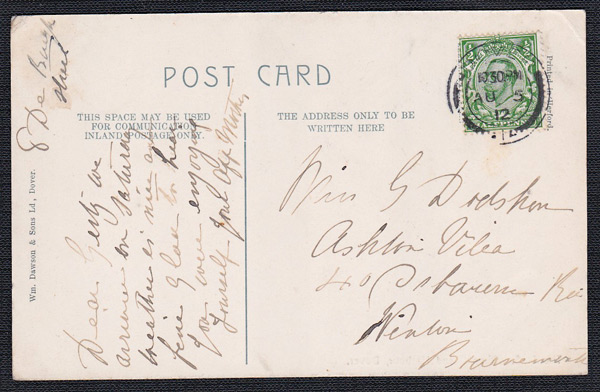 8 De Burgh
Street
POST CARD
THIS SPACE MAY BE USED
FOR COMMUNICATION
INLAND POSTAGE ONLY.
THE ADDRESS ONLY TO BE
WRITTEN HERE
Dear Gerty we
arrived on Saturday
weather is nice and
fine glad to hear
you were enjoying
Yourself your Aff Mother
Miss G Dodshon
Ashton Villa
40
Winton
Bournemouth
10.30 PM
AU 5
12
Wm. Dawson & Sons Ld., Dover.
Printed in